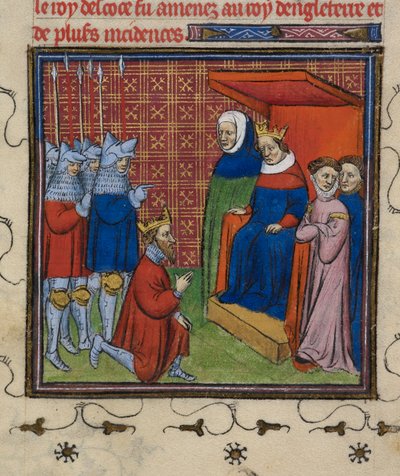 le roy descoce fu amenez au roy dengleterre et
de plusſ incidences